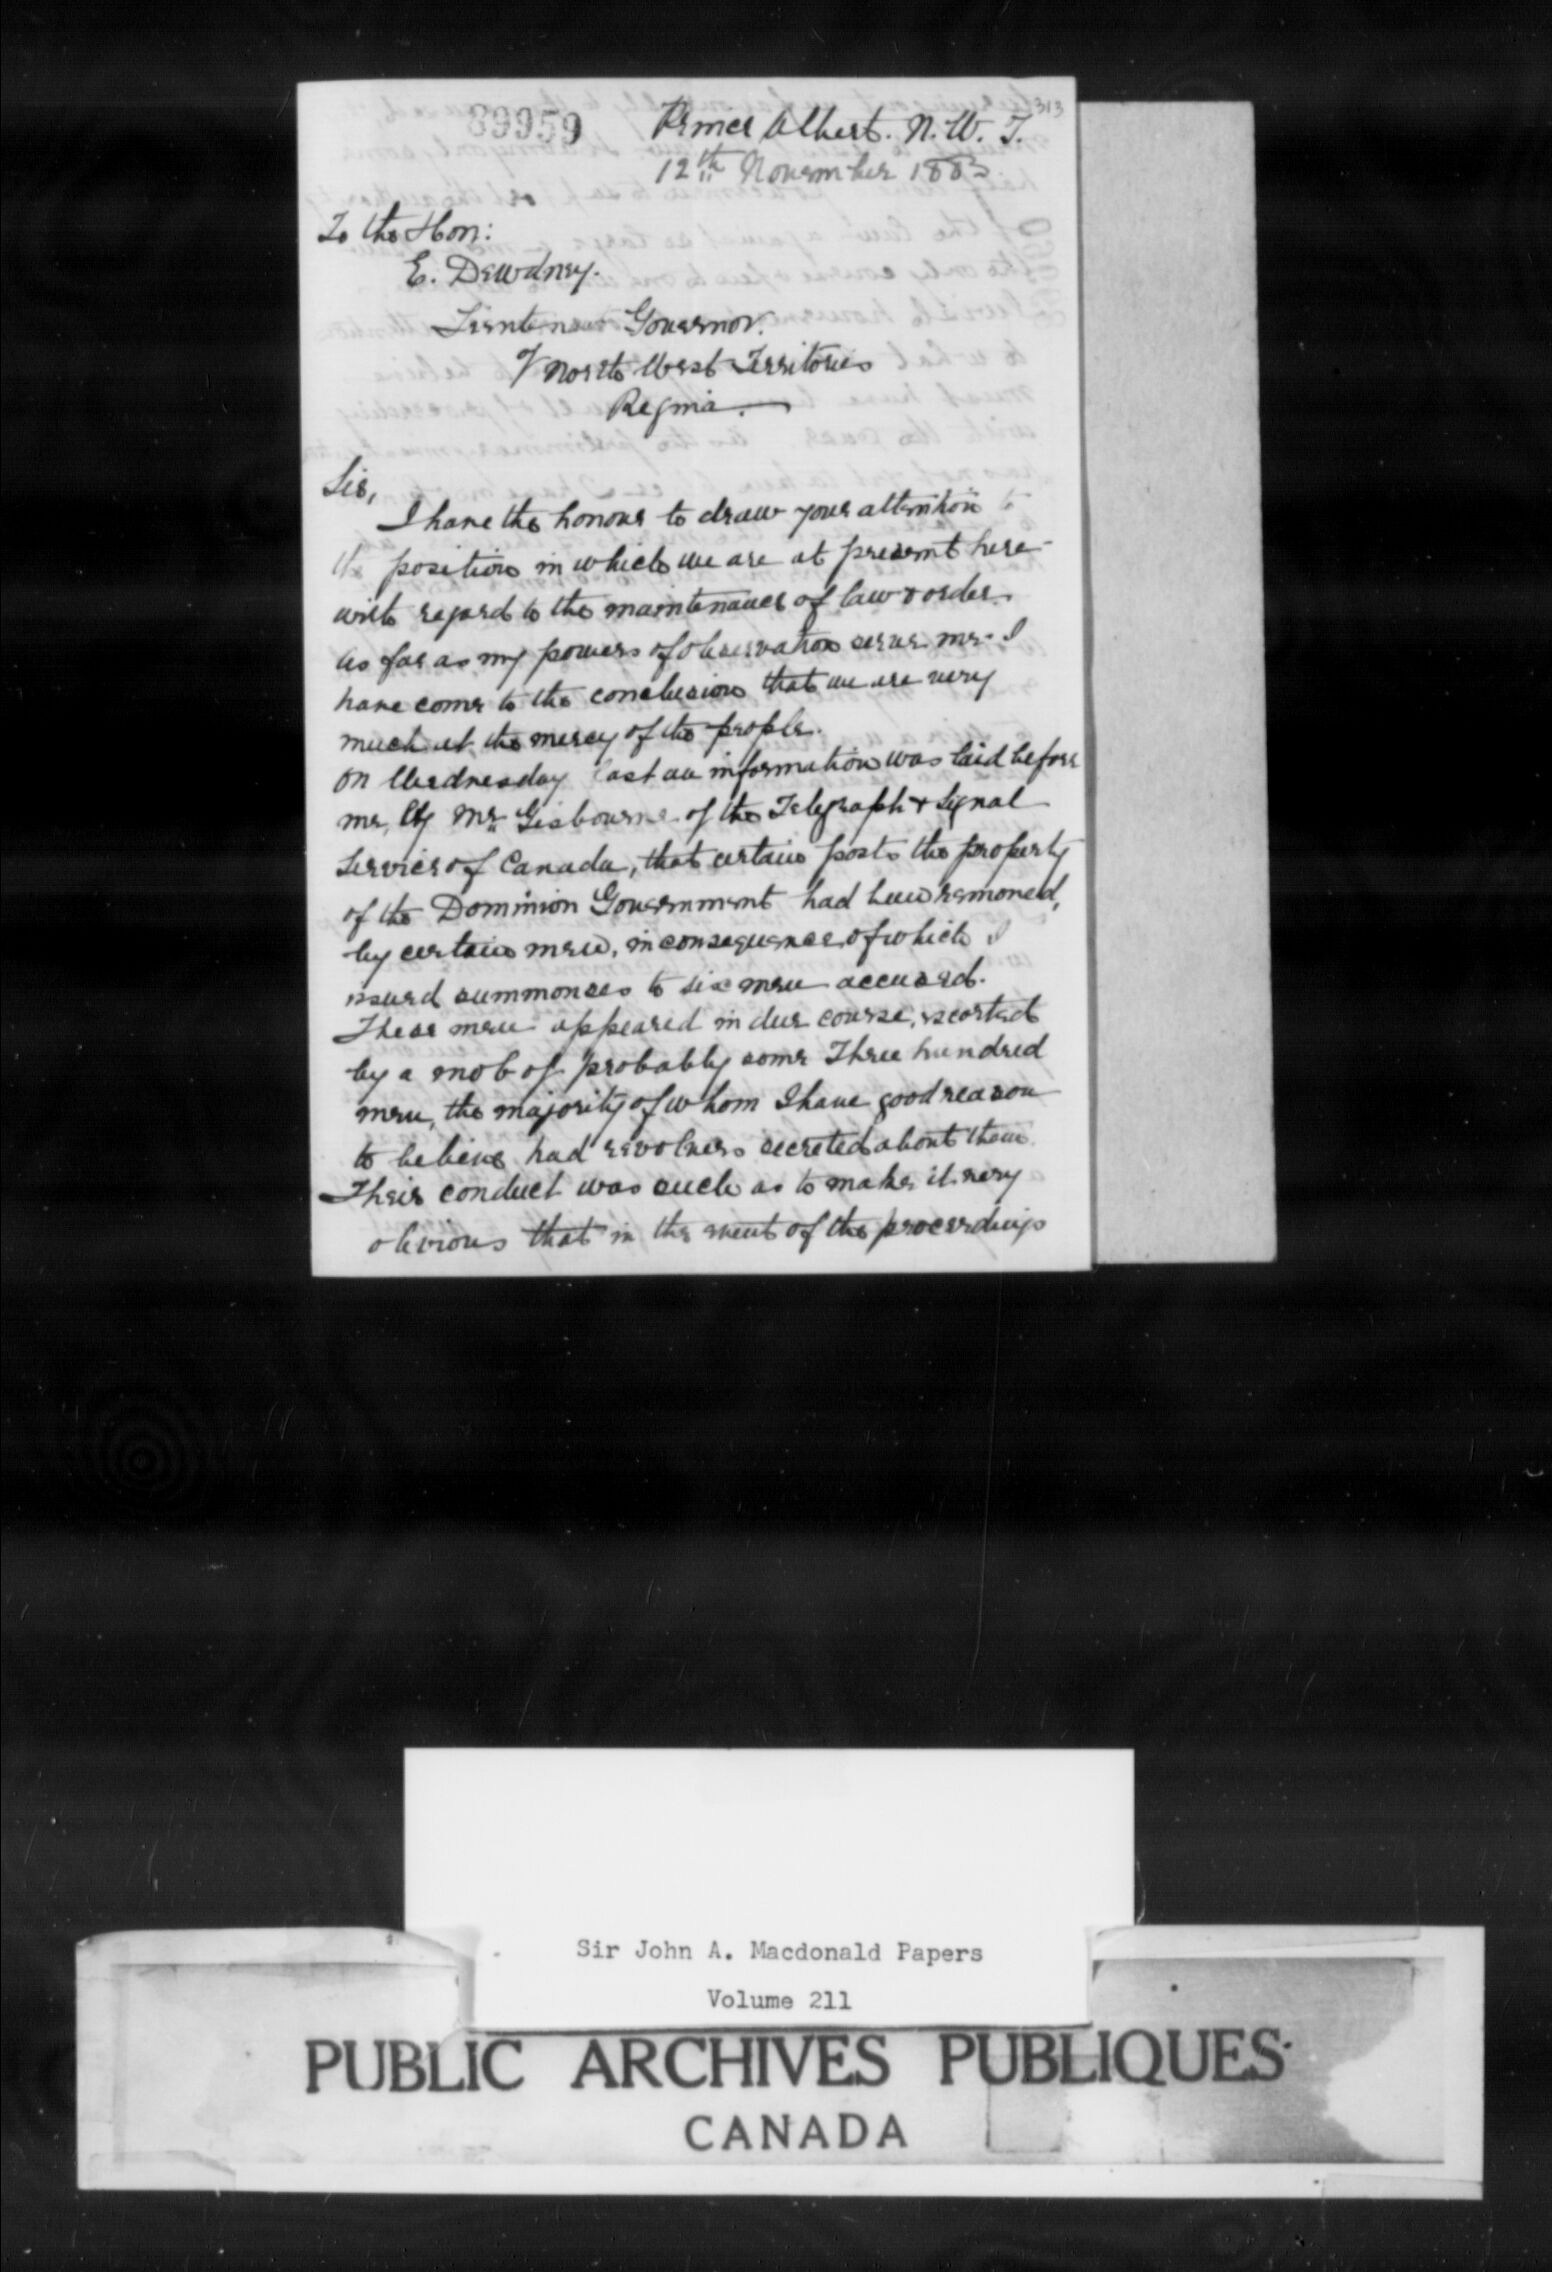 89959
313
Prince Albert. N. W. T.
12th November 1883.
To the Hon:
E. Dewdney.
Lieutenant Governor.
of North West Territories
Regina.
Sir,
I have the honour to draw your attention to
the position in which we are at present here-
with regard to the maintenance of law & order.
As far as my powers of observation serve me- I
have come to the conclusion that we are very
much at the mercy of the people.
On Wednesday last an information was laid before
me, by Mr. Gisbourne of the Telegraph & Signal
Service of Canada, that certain posts the property
of the Dominion Government had been removed,
by certain men, in consequence of which I
issued summonses to six men accused.
These men appeared in due course, escorted
by a mob of probably some Three hundred
men, the majority of whom I have good reason
to believe had revolvers secreted about them.
Their conduct was such as to make it very
obvious that in the event of the proceedings
Sir John A. Macdonald Papers
Volume 211
PUBLIC ARCHIVES PUBLIQUES
CANADA